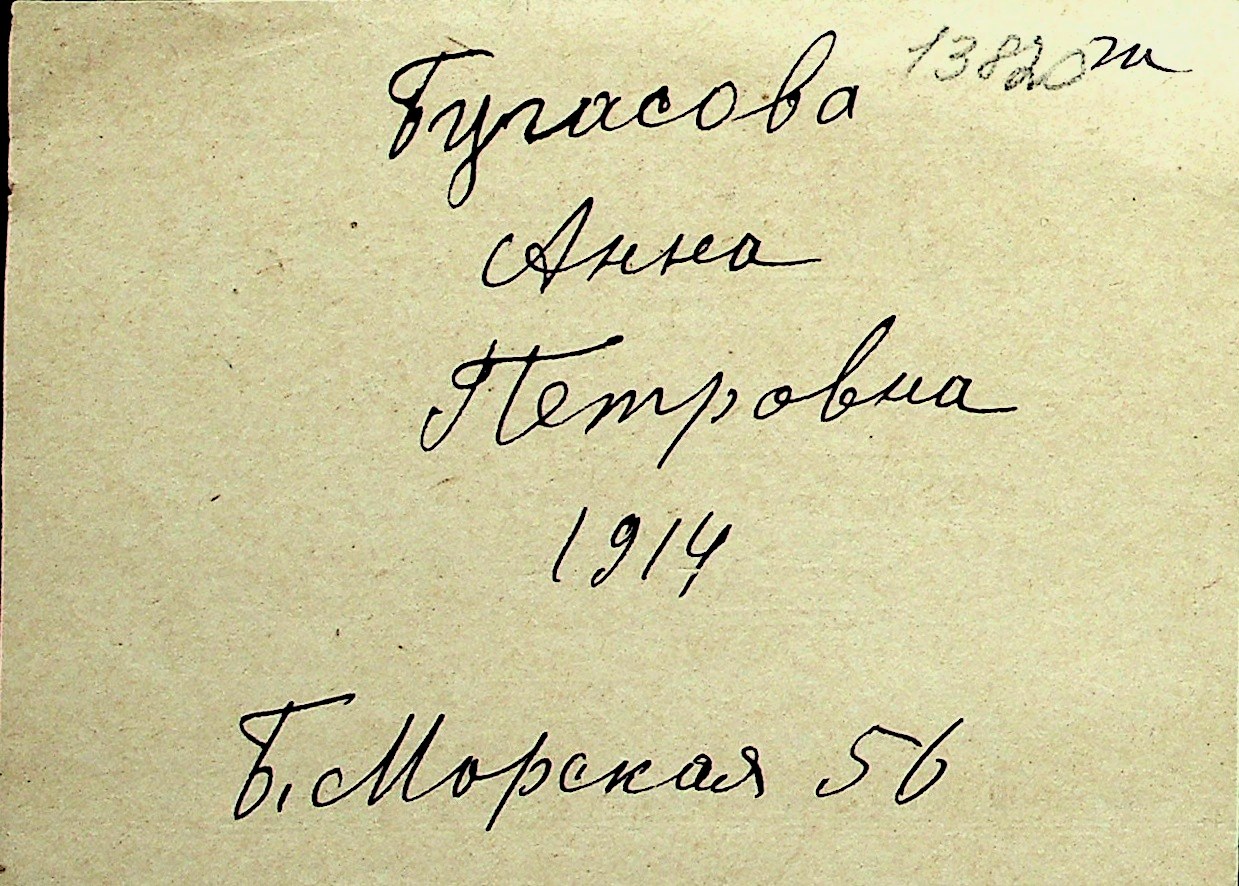 13820 га
Бугасова
Анна
Петровна
1914
Б. Морская 56